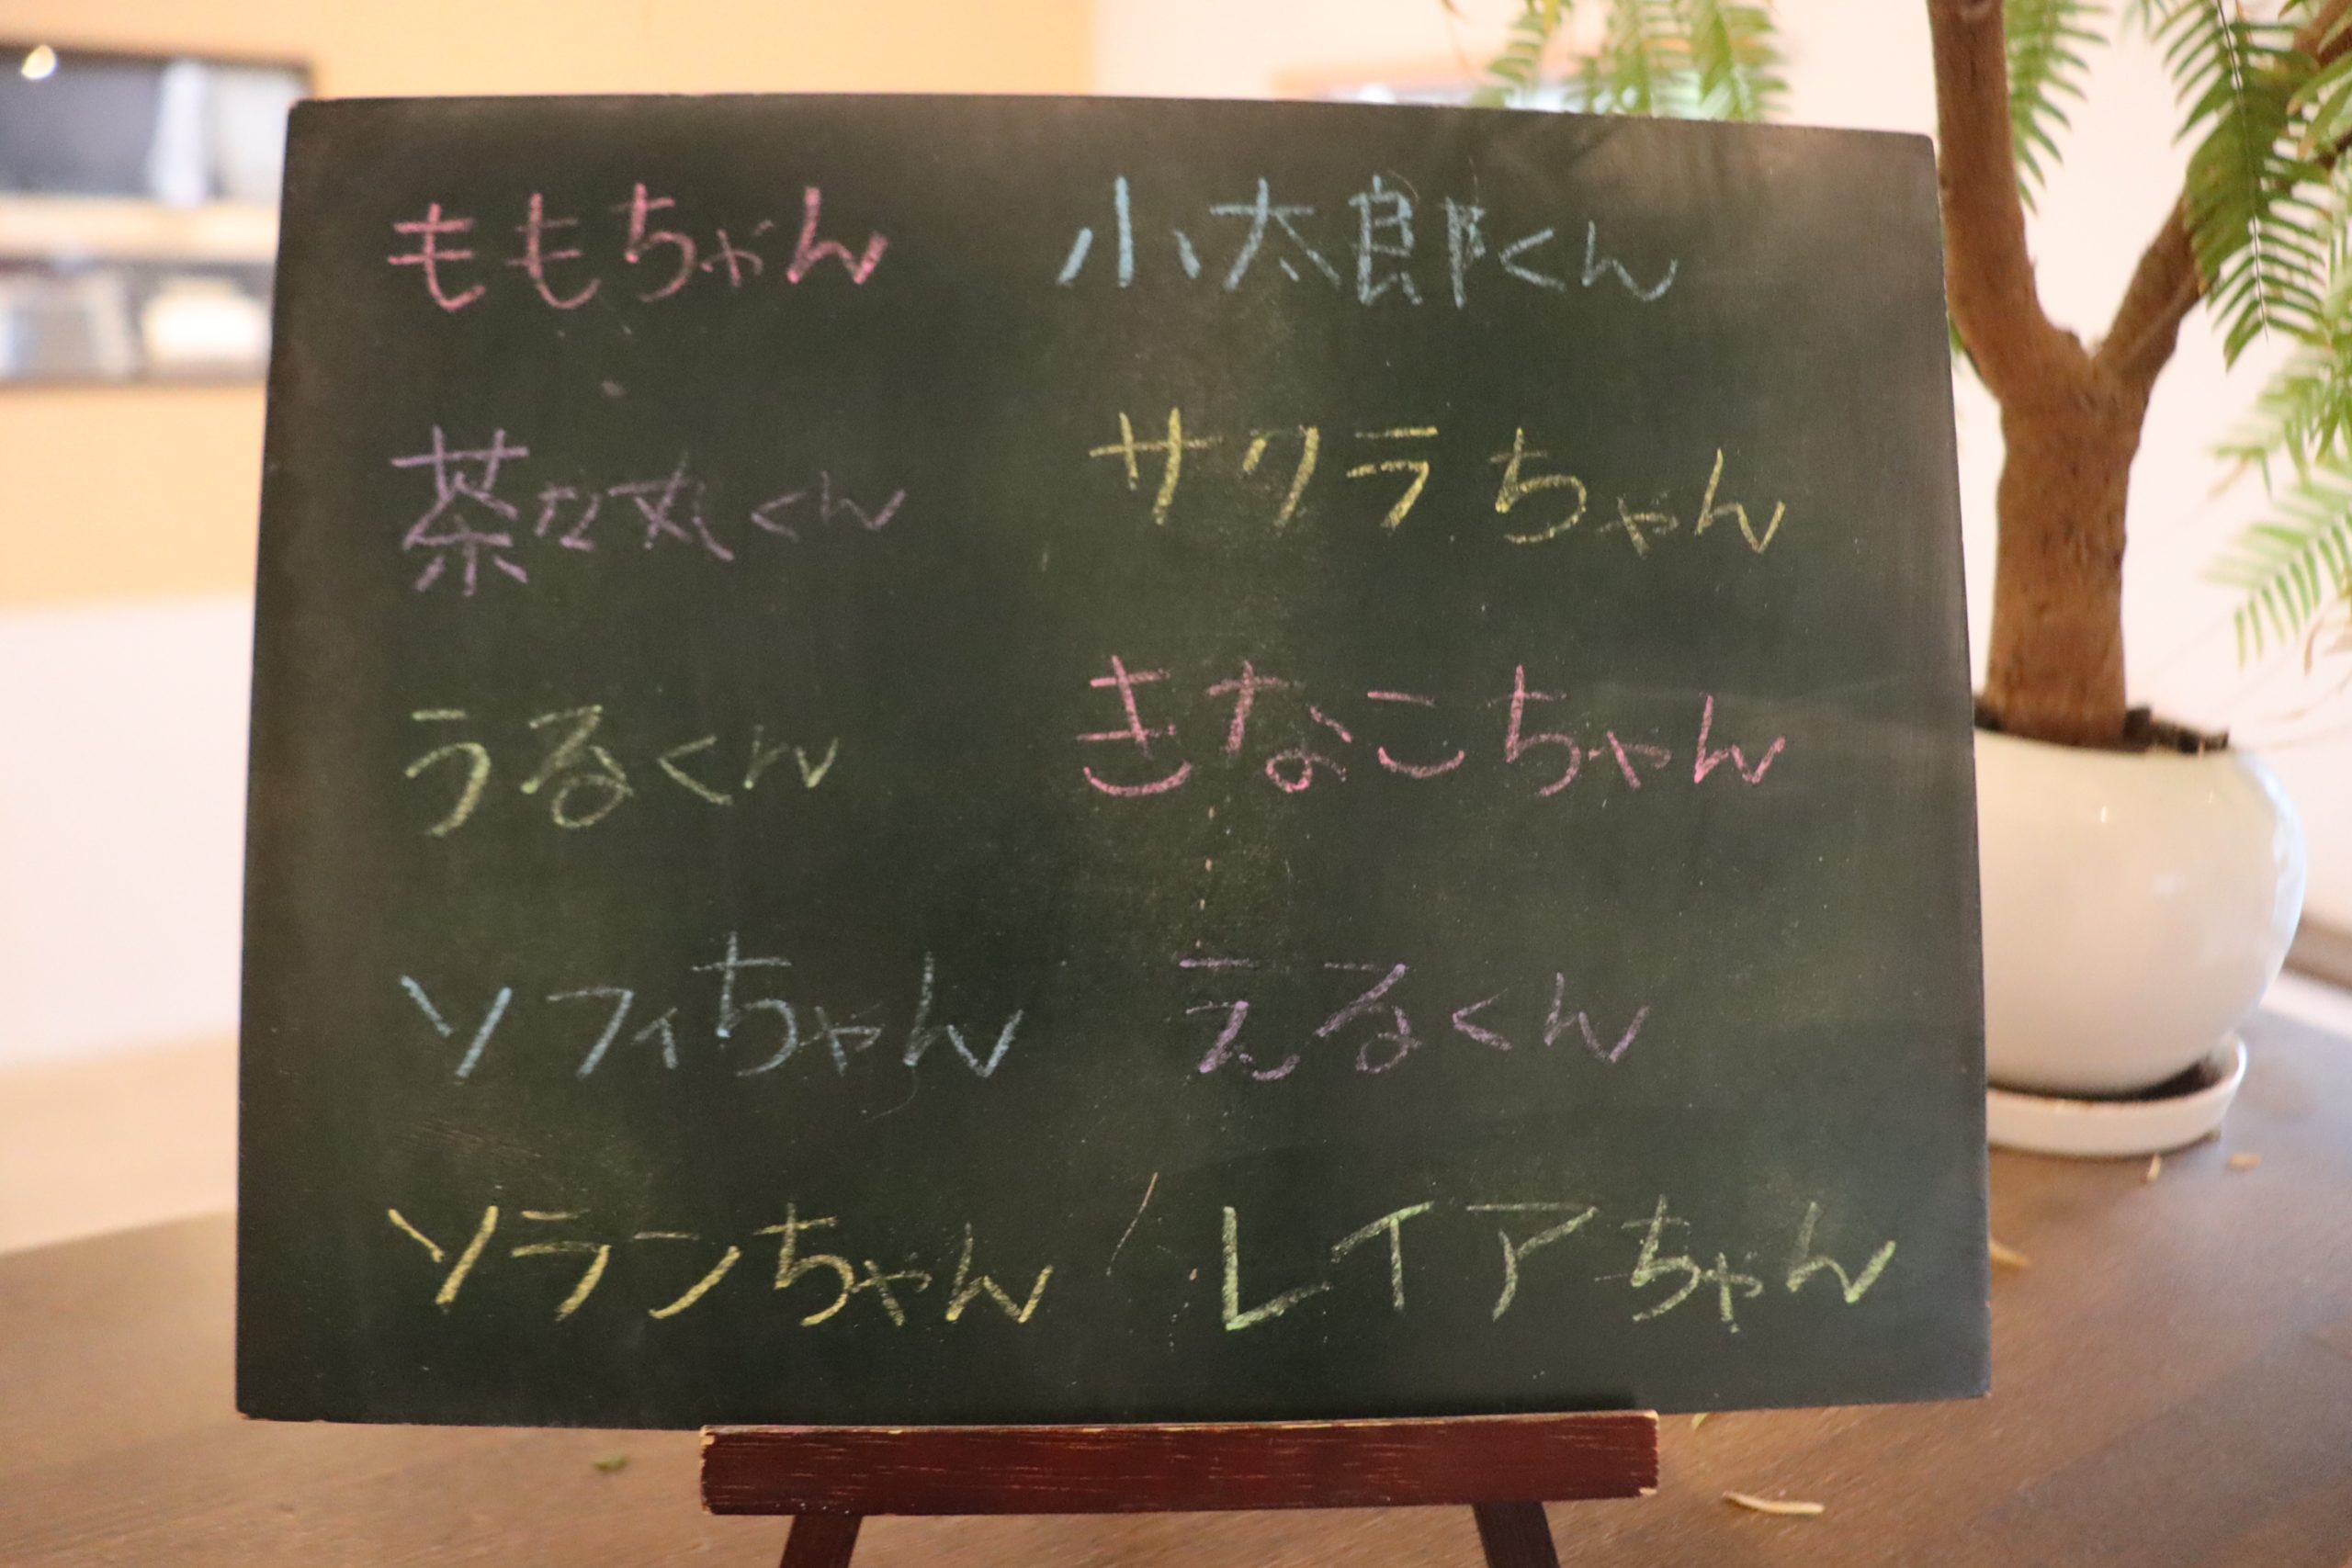 ももちゃん 小太郎くん
茶々丸くん サクラちゃん
うるくん きなこちゃん
ソフィちゃん えるくん
ソランちゃん レイアちゃん